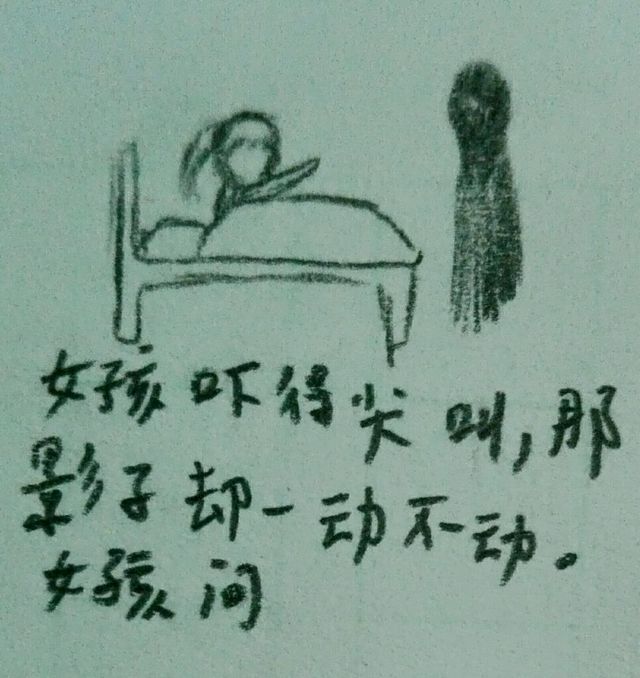 女孩吓得尖叫,那
影子却一动不动。
女孩问